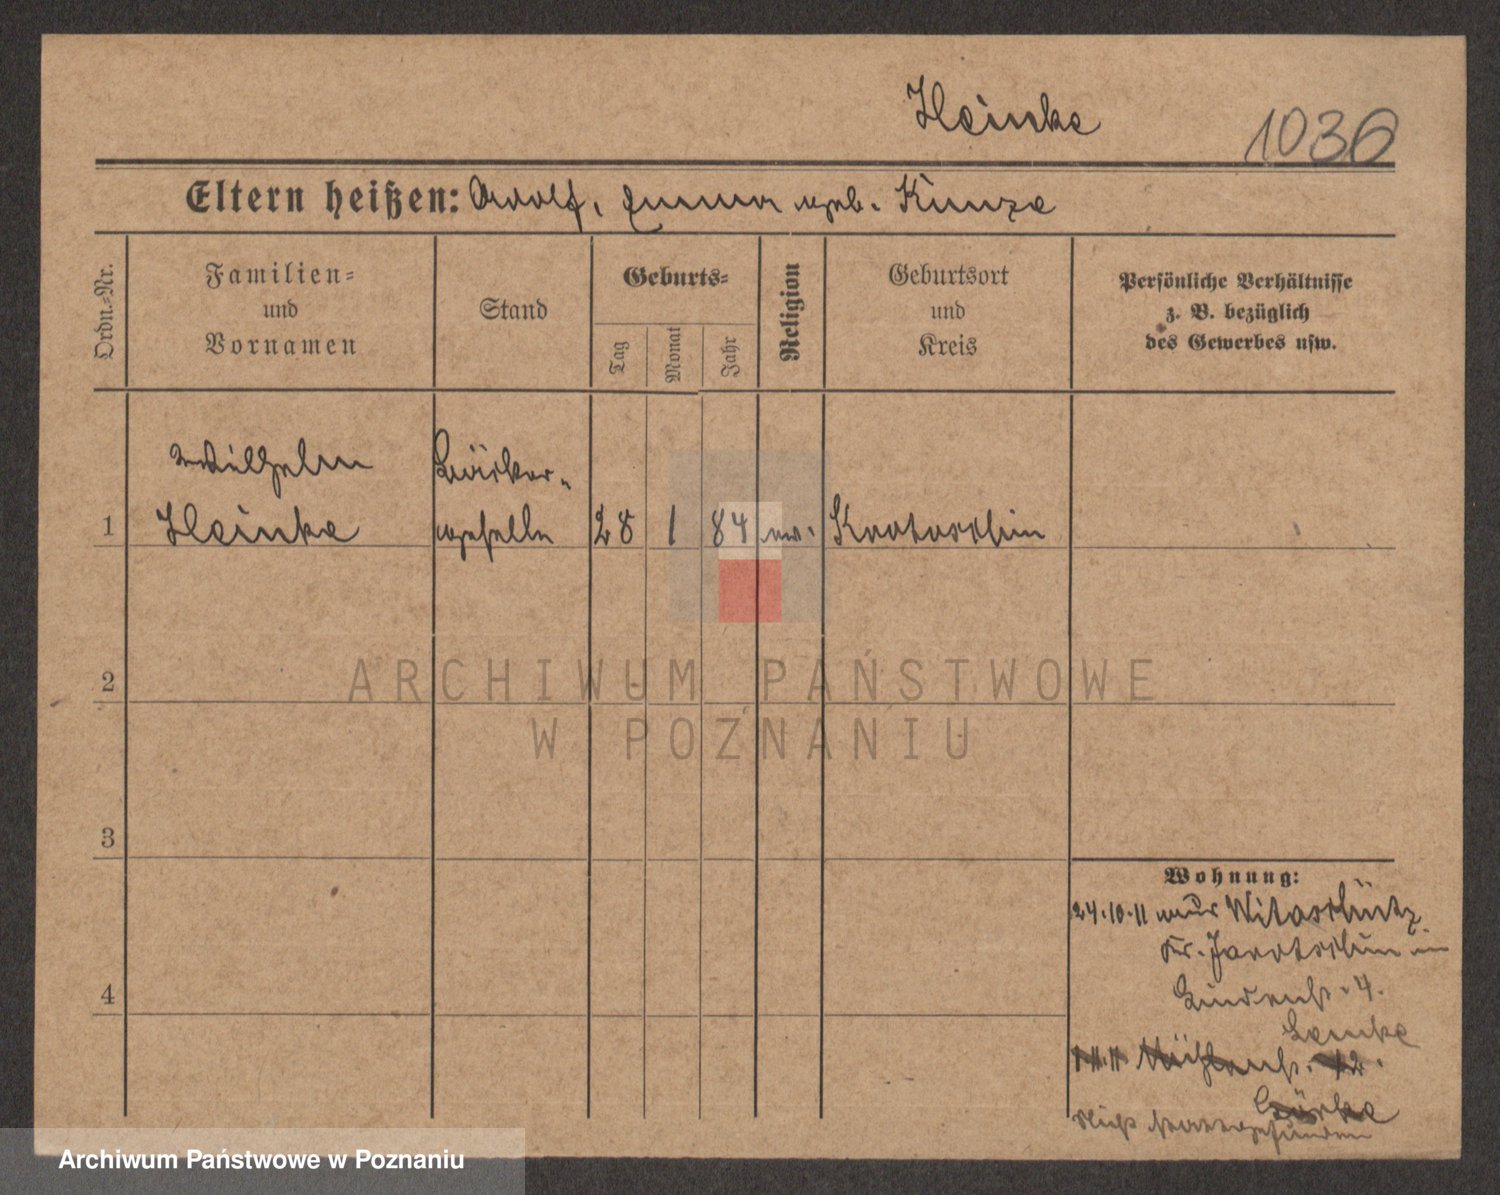 Heinke
1036
Eltern heißen: Adolf, Emma geb. Kunze
Ordn.=Nr.
Familien=
und
Vornamen
Stand
Geburts=
Tag
Monat
Jahr
Religion
Geburtsort
und
Kreis
Persönliche Verhältnisse
z. B. bezüglich
des Gewerbes usw.
Wilhelm
Heinke
geselle
1
28
1
84
ev.
Krotoschin
2
3
4
ARCHIWUM PAŃSTWOWE
W POZNANIU
Wohnung:
24.10.11
Kr. Jarotschin
Lindenst. 4.
Lemke
Mühlenst. 12.
Nicht stattgefunden
Archiwum Państwowe w Poznaniu